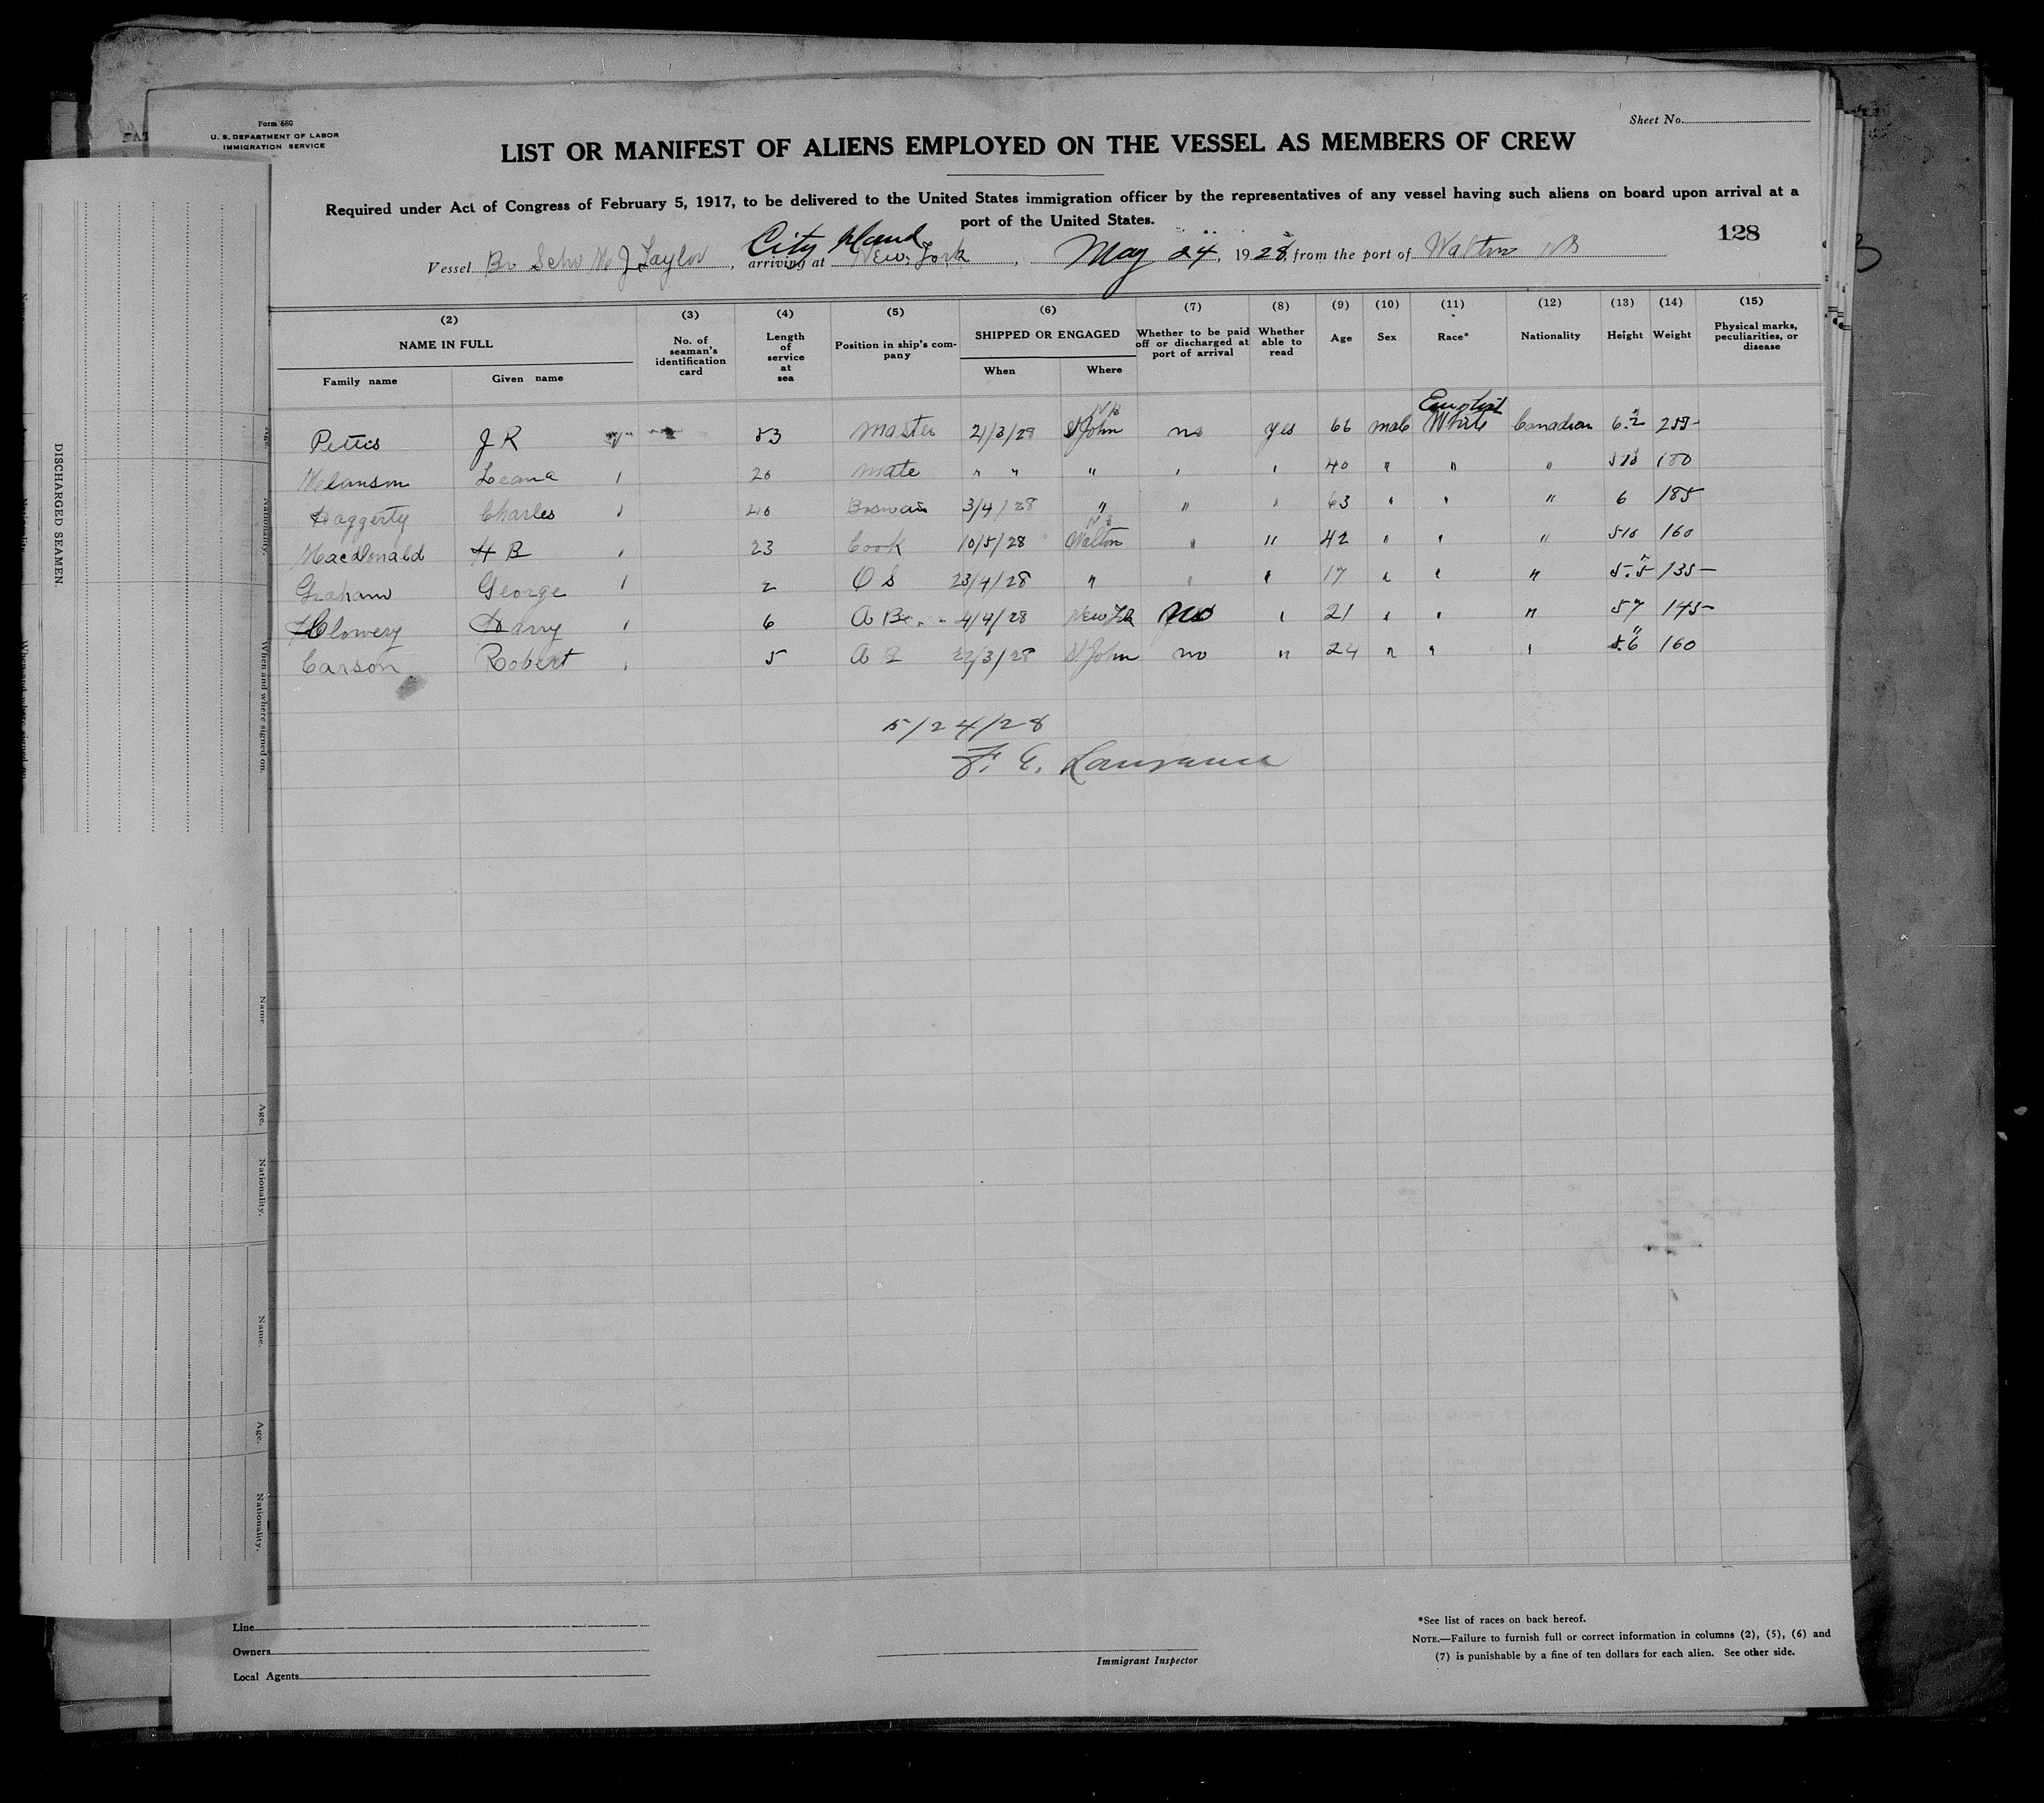 Form 680
U. S. DEPARTMENT OF LABOR
IMMIGRATION SERVICE
Sheet No.
LIST OR MANIFEST OF ALIENS EMPLOYED ON THE VESSEL AS MEMBERS OF CREW
Required under Act of Congress of February 5, 1917, to be delivered to the United States immigration officer by the representatives of any vessel having such aliens on board upon arrival at a
port of the United States.
128
City Island
Vessel Br Schr M J Taylor, arriving at New York, May 24, 1928, from the port of Walton NB
(2) (3) (4) (5) (6) (7) (8) (9) (10) (11) (12) (13) (14) (15)
NAME IN FULL No. of seaman's identification card Length of service at sea Position in ship's company SHIPPED OR ENGAGED Whether to be paid off or discharged at port of arrival Whether able to read Age Sex Race* Nationality Height Weight Physical marks, peculiarities, or disease
Family name Given name When Where
English
N B
Pettis J R 53 Master 21/3/28 St John no yes 66 male White Canadian 6.2 255
Melanson Leana 20 Mate " " " " " 40 " " " 5 10 180
Haggerty Charles 40 Boswain 3/4/28 " " " 63 " " " 6 185
MacDonald H B 23 Cook 10/5/28 Walton " " 42 " " " 5 10 160
Graham George 2 O S 23/4/28 " " " 17 " " " 5.5 135
Clowery Harry 6 A B 4/4/28 New Yk No " 21 " " " 5 7 145
Carson Robert 5 A B 22/3/28 St John no " 24 " " " 5.6 160
5/24/28
F. E.
DISCHARGED SEAMEN.
Age.
Nationality.
When and where signed on.
Name
Age.
Nationality.
Name.
Age.
Nationality.
Line
Owners
Local Agents
Immigrant Inspector
*See list of races on back hereof.
NOTE.—Failure to furnish full or correct information in columns (2), (5), (6) and
(7) is punishable by a fine of ten dollars for each alien. See other side.